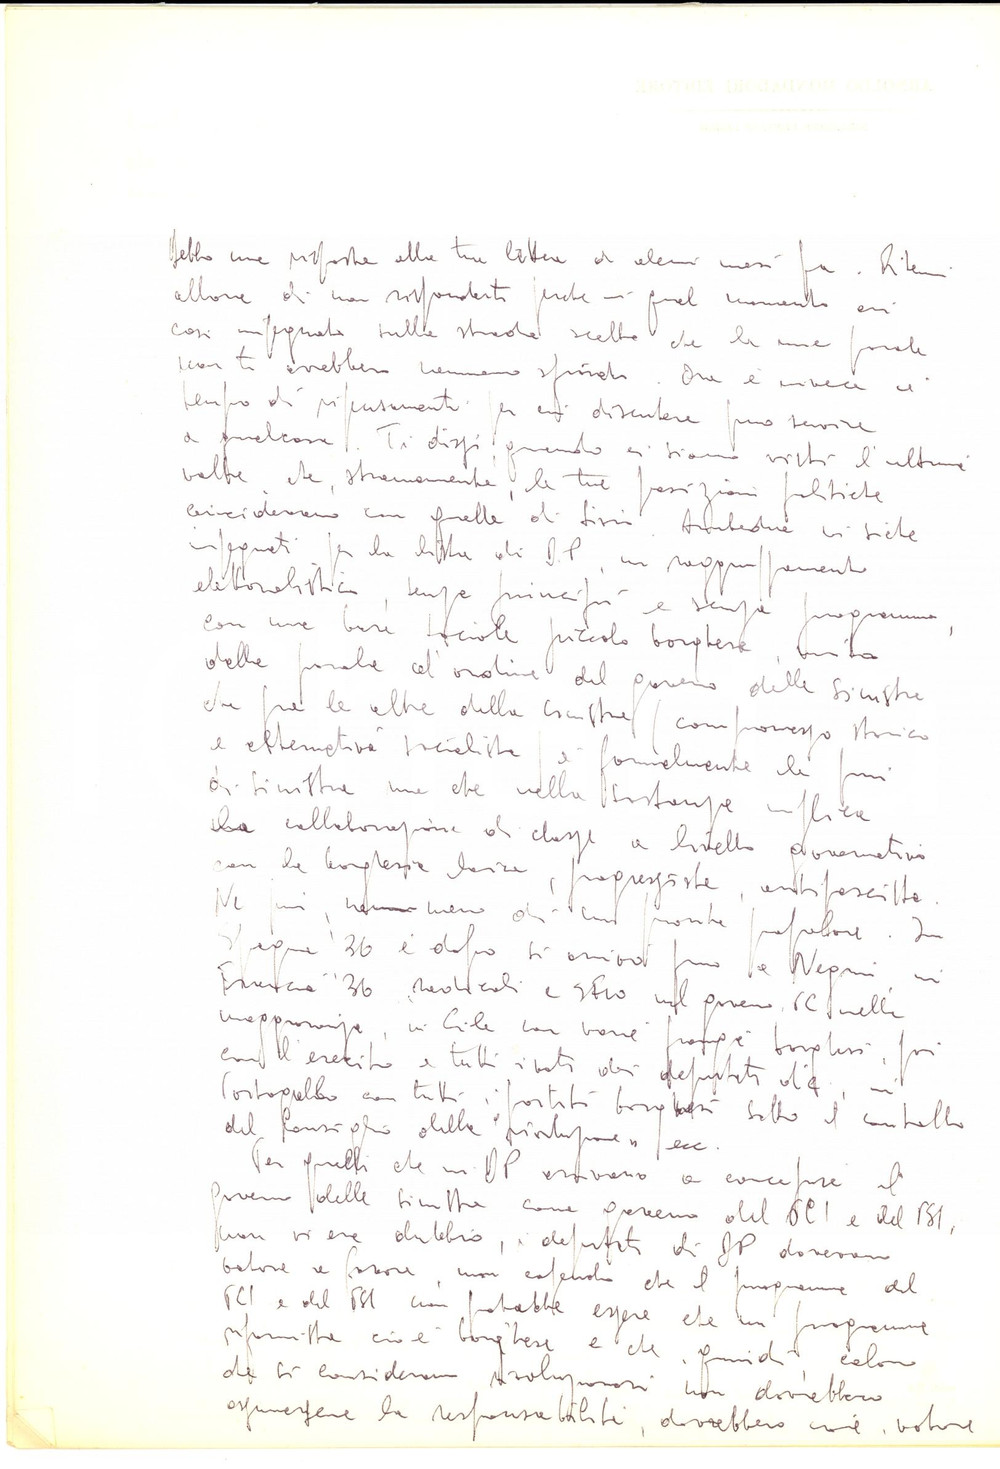 ARNOLDO MONDADORI EDITORE
Debbo una risposta alla tua lettera di alcuni mesi fa. Ritenni
allora di non risponderti perché in quel momento eri
così impegnato sulla strada scelta che le mie parole
non ti avrebbero nemmeno sfiorato. Ora è invece il
tempo di ripensamenti per cui discutere può servire
a qualcosa. Ti dissi, quando ci siamo visti l'ultima
volta, che, stranamente, le tue posizioni politiche
coincidevano con quelle di Livio. Ambedue vi siete
impegnati per la lista di D.P., un raggruppamento
elettoralistico, senza principii e senza programma,
con una base sociale piccolo borghese, unita
dalla parola d'ordine del governo delle sinistre
che fra le altre della sinistra (compromesso storico
e alternativa socialista) è formalmente la più
di sinistra ma che nella sostanza implica
la collaborazione di classe a livello governativo
con la borghesia laica, progressista, antifascista.
Né più, né meno di un fronte popolare. In
Spagna '36 e dopo si arrivò fino a Negrin, in
Francia '36 radicali e SFIO nel governo, PC nella
maggioranza, in Cile con varie frange borghesi, poi
con l'esercito e tutti i voti dei deputati d.c., in
Portogallo con tutti i partiti borghesi sotto il controllo
del Consiglio della "rivoluzione" ecc.
Per quelli che in DP arrivano a concepire il
governo delle sinistre come governo del PCI e del PSI,
non vi era dubbio, i deputati di DP dovevano
votare a favore, non capendo che il programma del
PCI e del PSI non potrebbe essere che un programma
riformista cioè borghese e che, quindi, coloro
che si considerano rivoluzionari non dovrebbero
assumersene la responsabilità, dovrebbero cioè votare